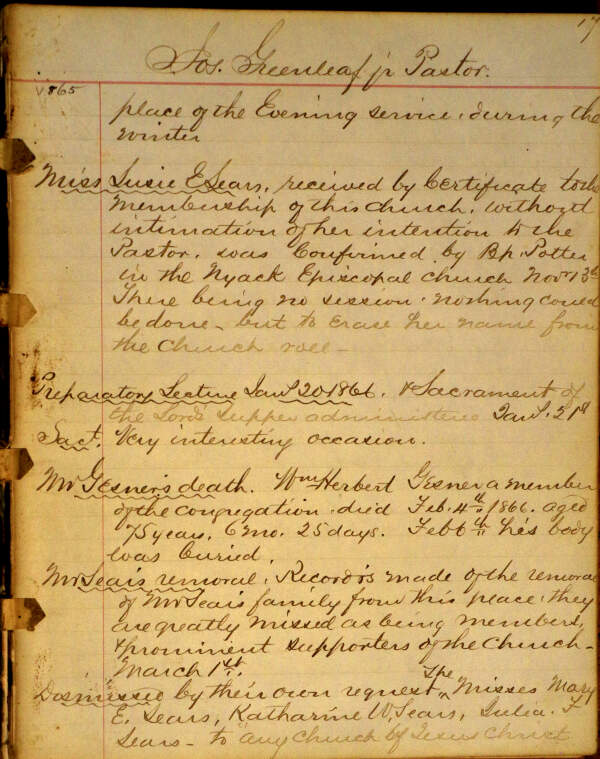 17
Jos. Greenleaf jr Pastor.
1865
place of the Evening service, during the
winter
Miss Susie E Sears, received by Certificate to the
membership of this church, without
intimation of her intention to the
Pastor, was Confirmed by Bp. Potter
in the Nyack Episcopal church Nov 13th
There being no session, nothing could
be done - but to erase her name from
the Church roll -
Preparatory Lecture Jan'y 20 1866. & Sacrament of
the Lords supper administered Jan'y. 21st
Sact. Very interesting occasion.
Mr Gesner's death. Wm Herbert Gesner a member
of the congregation died Feb. 4th 1866. aged
75 years, 6 mo. 25 days. Feb 6th his body
was buried.
Mr Sears removal, Record is made of the removal
of Mr Sears family from this place, they
are greatly missed as being members,
& prominent supporters of the Church -
March 1st.
Dismissed by their own request, The Misses Mary
E. Sears, Katharine W, Sears, Julia. F
Sears - to any Church of Jesus Christ